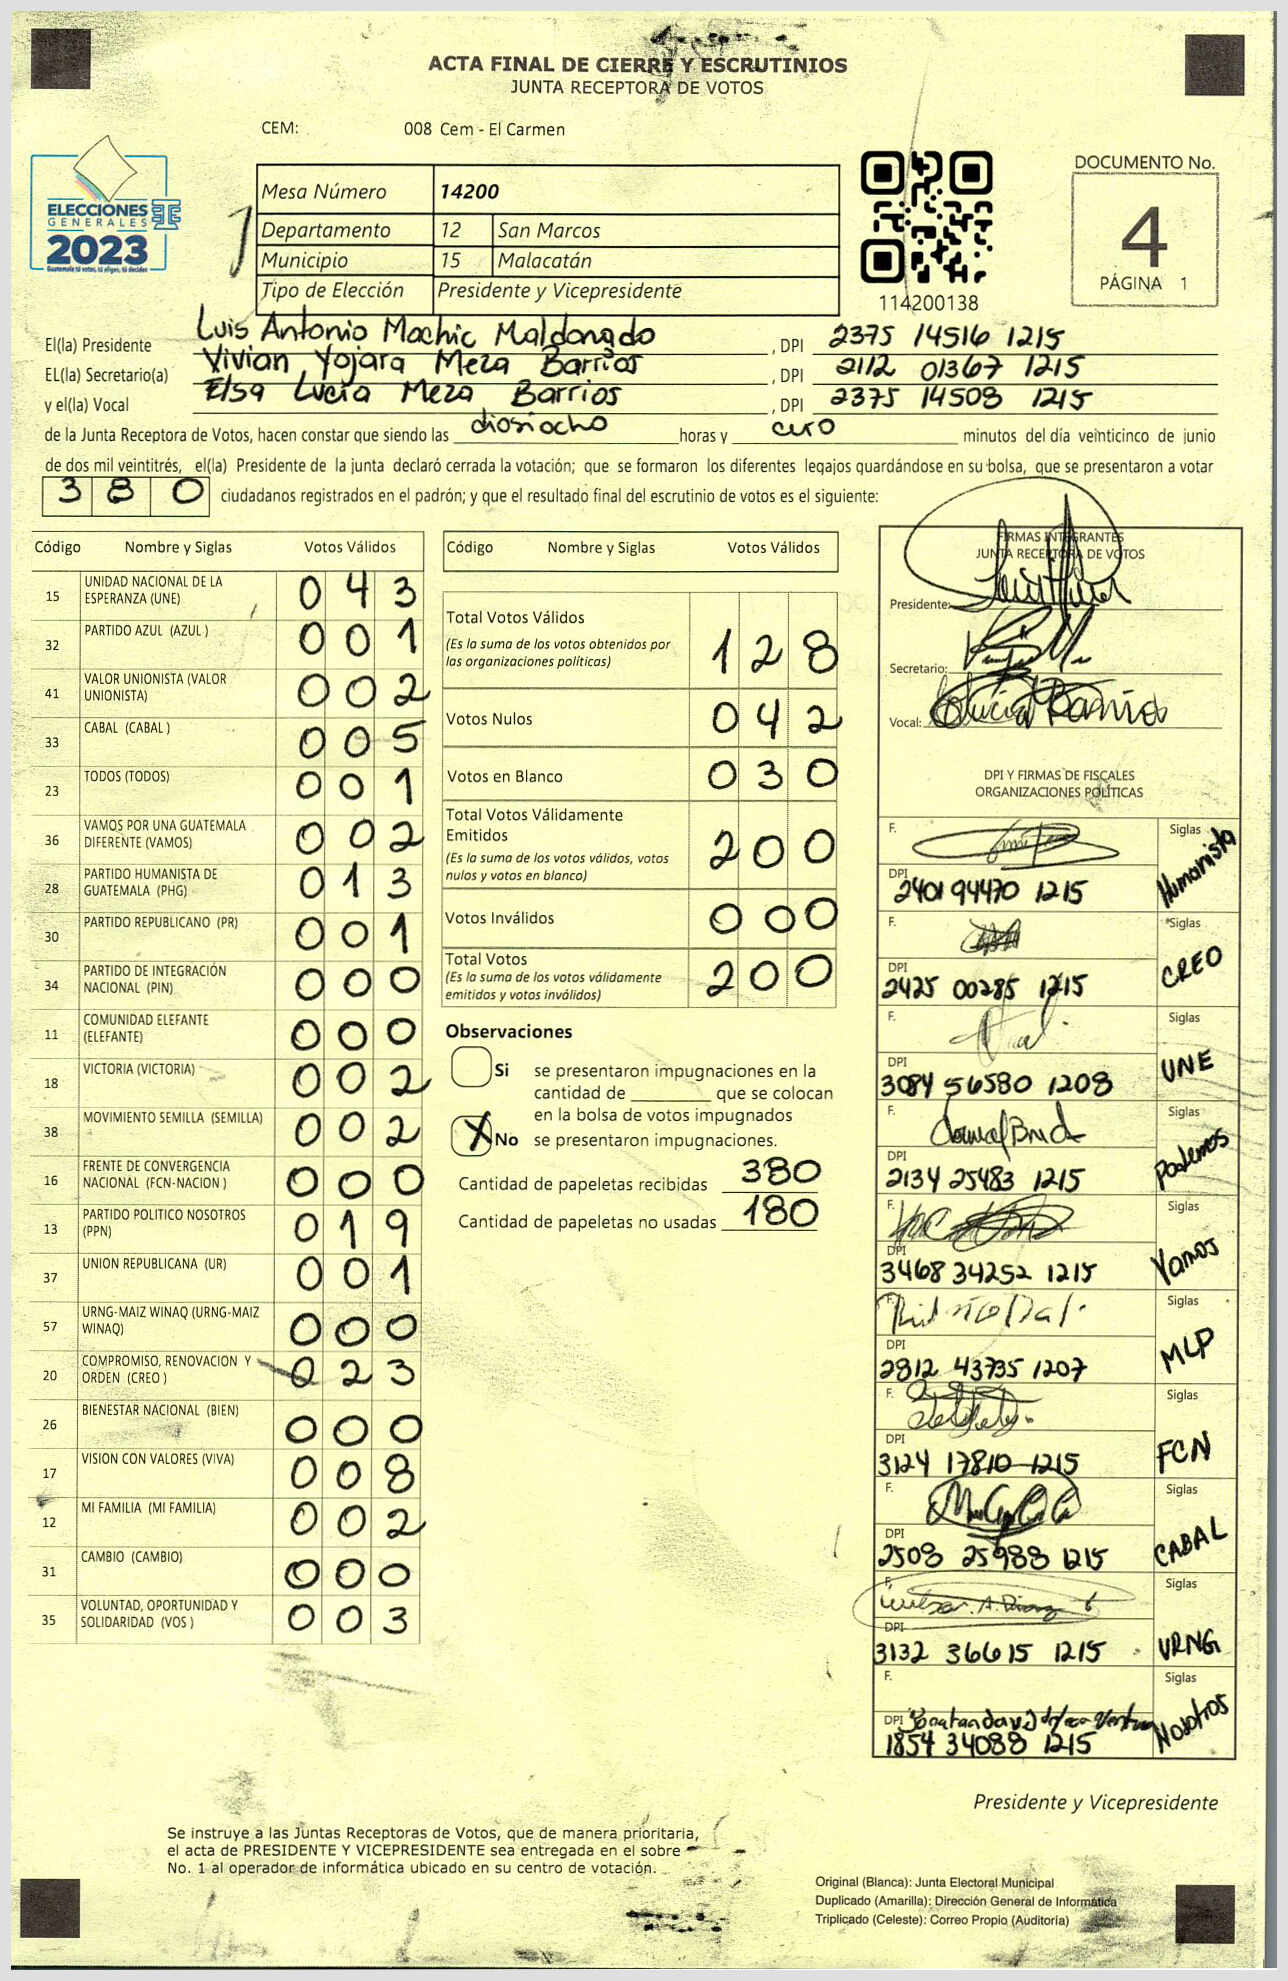 ACTA FINAL DE CIERRE Y ESCRUTINIOS
JUNTA RECEPTORA DE VOTOS
CEM: 008 Cem - El Carmen
ELECCIONES
GENERALES
2023
Guatemala tú votas, tú eliges, tú decides
Mesa Número 14200
Departamento 12 San Marcos
Municipio 15 Malacatán
Tipo de Elección Presidente y Vicepresidente
114200138
DOCUMENTO No.
4
PÁGINA 1
El(la) Presidente Luis Antonio Mochic Maldonado , DPI 2375 14516 1215
EL(la) Secretario(a) Vivian Yojara Meza Barrios , DPI 2112 01367 1215
y el(la) Vocal Elsa Lucía Meza Barrios , DPI 2375 14508 1215
de la Junta Receptora de Votos, hacen constar que siendo las diosiocho horas y cero minutos del día veinticinco de junio
de dos mil veintitrés, el(la) Presidente de la junta declaró cerrada la votación; que se formaron los diferentes legajos guardándose en su bolsa, que se presentaron a votar
380 ciudadanos registrados en el padrón; y que el resultado final del escrutinio de votos es el siguiente:
Código Nombre y Siglas Votos Válidos
15 UNIDAD NACIONAL DE LA ESPERANZA (UNE) 043
32 PARTIDO AZUL (AZUL ) 001
41 VALOR UNIONISTA (VALOR UNIONISTA) 002
33 CABAL (CABAL ) 005
23 TODOS (TODOS) 001
36 VAMOS POR UNA GUATEMALA DIFERENTE (VAMOS) 002
28 PARTIDO HUMANISTA DE GUATEMALA (PHG) 013
30 PARTIDO REPUBLICANO (PR) 001
34 PARTIDO DE INTEGRACIÓN NACIONAL (PIN) 000
11 COMUNIDAD ELEFANTE (ELEFANTE) 000
18 VICTORIA (VICTORIA) 002
38 MOVIMIENTO SEMILLA (SEMILLA) 002
16 FRENTE DE CONVERGENCIA NACIONAL (FCN-NACION ) 000
13 PARTIDO POLITICO NOSOTROS (PPN) 019
37 UNION REPUBLICANA (UR) 001
57 URNG-MAIZ WINAQ (URNG-MAIZ WINAQ) 000
20 COMPROMISO, RENOVACION Y ORDEN (CREO ) 023
26 BIENESTAR NACIONAL (BIEN) 000
17 VISION CON VALORES (VIVA) 008
12 MI FAMILIA (MI FAMILIA) 002
31 CAMBIO (CAMBIO) 000
35 VOLUNTAD, OPORTUNIDAD Y SOLIDARIDAD (VOS ) 003
Código Nombre y Siglas Votos Válidos
Total Votos Válidos
(Es la suma de los votos obtenidos por
las organizaciones políticas) 128
Votos Nulos 042
Votos en Blanco 030
Total Votos Válidamente
Emitidos
(Es la suma de los votos válidos, votos
nulos y votos en blanco) 200
Votos Inválidos 000
Total Votos
(Es la suma de los votos válidamente
emitidos y votos inválidos) 200
Observaciones
Si se presentaron impugnaciones en la
cantidad de ________ que se colocan
en la bolsa de votos impugnados
X No se presentaron impugnaciones.
Cantidad de papeletas recibidas 380
Cantidad de papeletas no usadas 180
FIRMAS INTEGRANTES
JUNTA RECEPTORA DE VOTOS
Presidente:
Secretario:
Vocal:
DPI Y FIRMAS DE FISCALES
ORGANIZACIONES POLÍTICAS
F. Siglas Humanista
DPI 2401 94470 1215
F. Siglas CREO
DPI 2425 00285 1215
F. Siglas UNE
DPI 3084 56580 1208
F. Siglas Podemos
DPI 2134 25483 1215
F. Siglas Vamos
DPI 3468 34252 1215
F. Siglas MLP
DPI 2812 43735 1207
F. Siglas FCN
DPI 3124 17810 1215
F. Siglas CABAL
DPI 2508 25988 1215
F. Siglas URNG
DPI 3132 36615 1215
F. Siglas Nosotros
DPI 1854 34088 1215
Presidente y Vicepresidente
Se instruye a las Juntas Receptoras de Votos, que de manera prioritaria,
el acta de PRESIDENTE Y VICEPRESIDENTE sea entregada en el sobre
No. 1 al operador de informática ubicado en su centro de votación.
Original (Blanca): Junta Electoral Municipal
Duplicado (Amarilla): Dirección General de Informática
Triplicado (Celeste): Correo Propio (Auditoría)